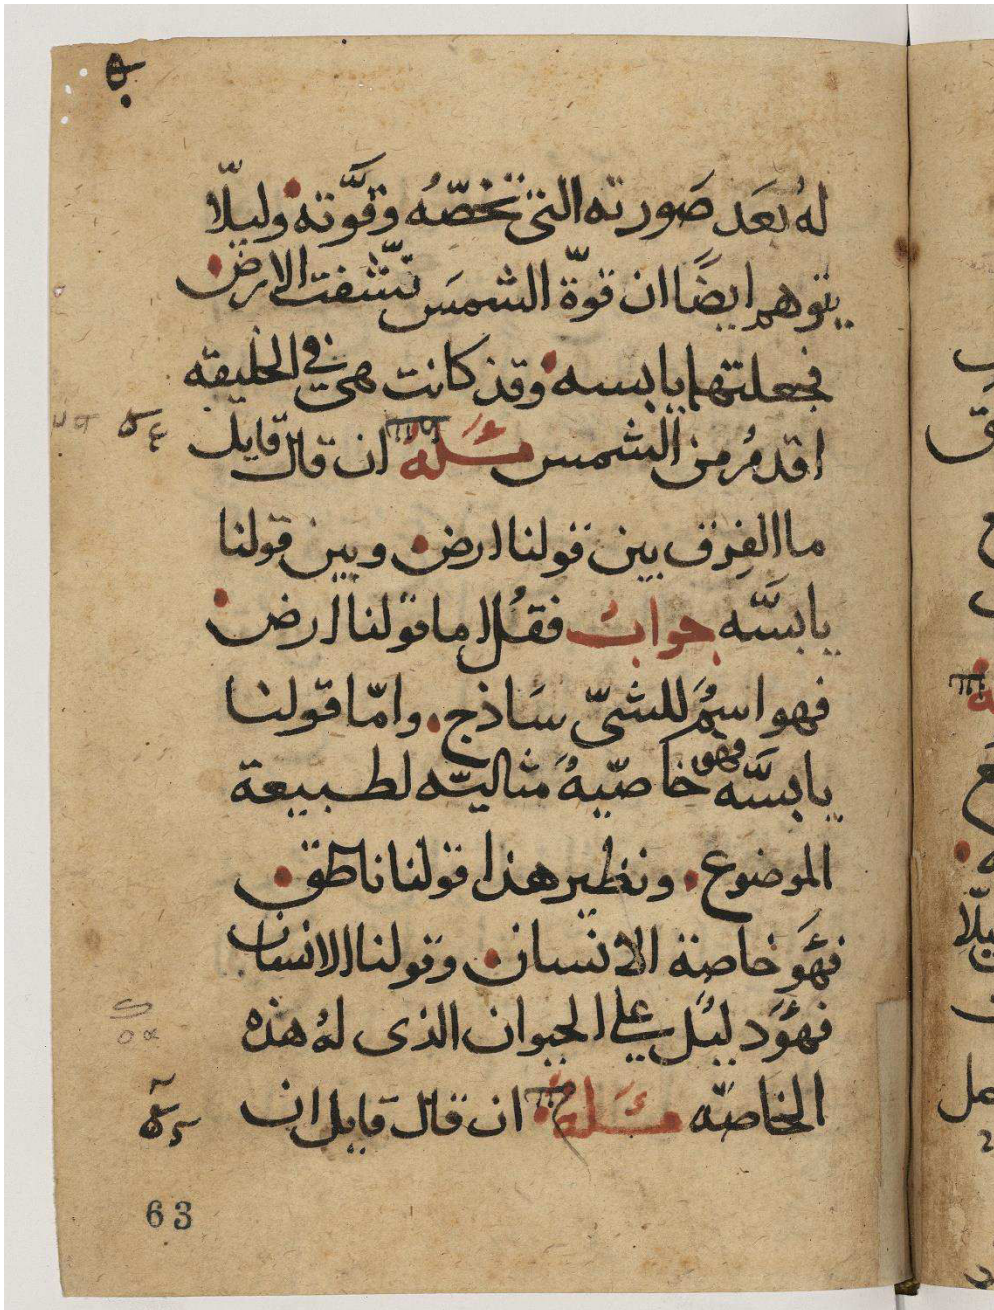 لهُ بَعَد صَورته التي تخصّهُ وقوَّته وليلّا
يتوهم ايضًا ان قوّة الشمسَ نشّفت الارض
فجعلتها يابسه وقد كانت هي في الخليقه
اقدمُ من الشمس مسَئلهُ ان قال قايل
ما الفِرق بين قولنا ارض وبين قولنا
يابسَّه جوابُ فقُل اما قولنا ارض
فهو اسمٌ للشيّ سَاذج وامّا قولنا
يابسَّه فهو خاصّيهُ مثاليّه لطبيعة
الموضوع ونظير هذا قولنا ناطق
فهَو خاصة الانسان وقولنا الانسان
فهوَ دليُل علي الحيوان الذى لهُ هذه
الخاصّه مسَئلة ان قال قايل ان
63